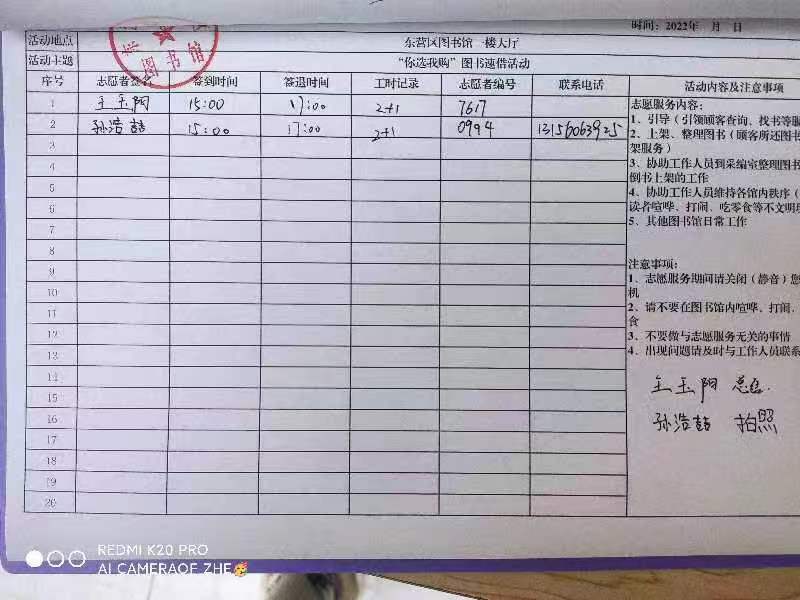 时间：2022年 月 日
活动地点 东营区图书馆一楼大厅
活动主题 “你选我购”图书速借活动
图书馆
序号 志愿者签名 签到时间 签退时间 工时记录 志愿者编号 联系电话 活动内容及注意事项
1 王玉阳 15:00 17:00 2+1 7617
2 孙浩喆 15:00 17:00 2+1 0994 13156063925
3
4
5
6
7
8
9
10
11
12
13
14
15
16
17
18
19
20
志愿服务内容：
1、引导（引领顾客查询、找书等服
2、上架、整理图书（顾客所还图书
架服务）
3、协助工作人员到采编室整理图书
倒书上架的工作
4、协助工作人员维持各馆内秩序（
读者喧哗、打闹、吃零食等不文明现
5、其他图书馆日常工作
注意事项：
1、志愿服务期间请关闭（静音）您
机
2、请不要在图书馆内喧哗、打闹、
食
3、不要做与志愿服务无关的事情
4、出现问题请及时与工作人员联系
王玉阳 总结
孙浩喆 拍照
REDMI K20 PRO
AI CAMERAOF ZHE🥳